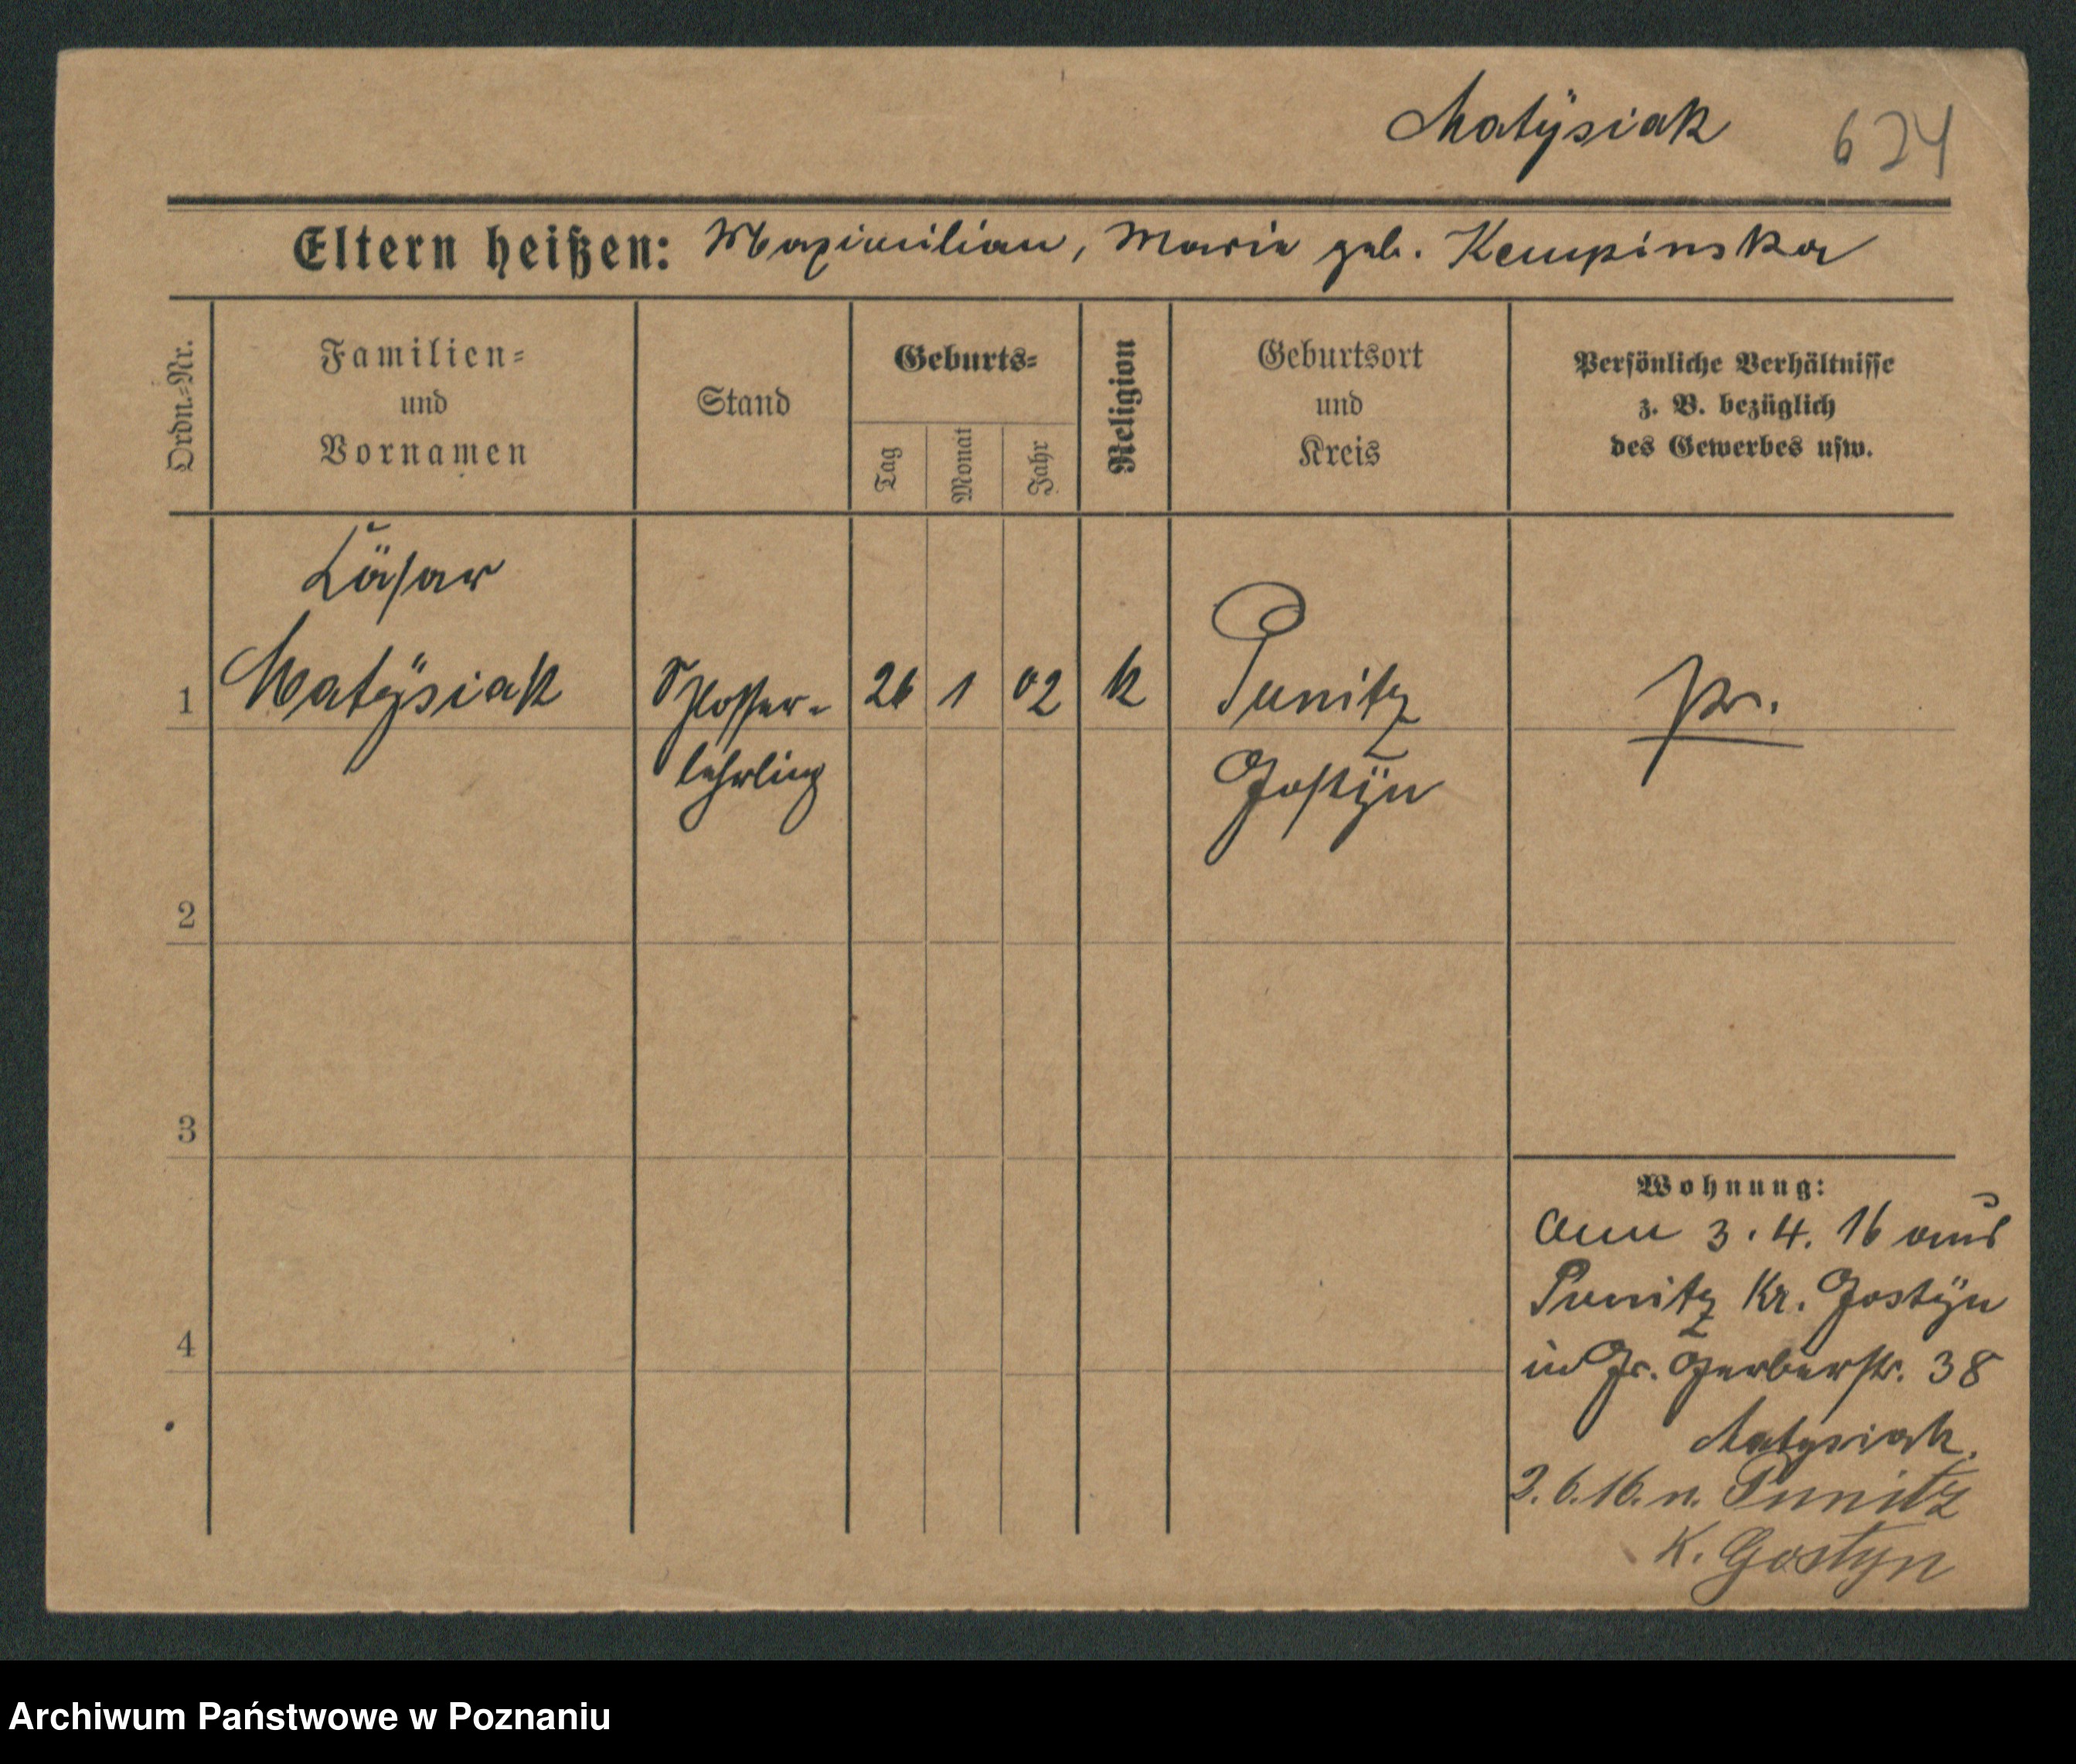 Matÿsiak 624
Eltern heißen: Maximilian, Marie geb. Kempinska
Ordn.-Nr.
Familien-
und
Vornamen
Stand
Geburts-
Tag
Monat
Jahr
Religion
Geburtsort
und
Kreis
Persönliche Verhältnisse
z. B. bezüglich
des Gewerbes usw.
Cäsar
1 Matÿsiak Schlosser- 26 1 02 k Punitz pr.
lehrling Gostÿn
2
3
4
Wohnung:
3. 4. 16 aus
Punitz Kr. Gostÿn
in Gr. Gerberstr. 38
Matysiak.
2. 6. 16. n. Punitz
K. Gostyn
Archiwum Państwowe w Poznaniu